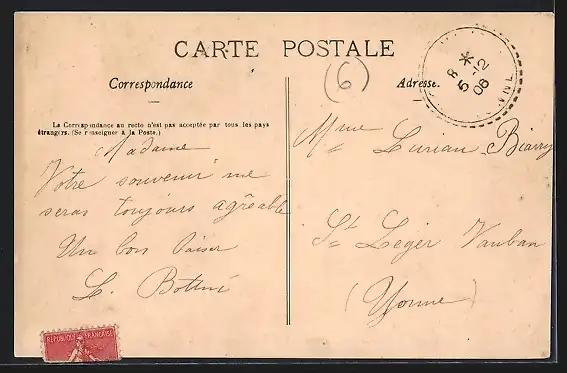 CARTE POSTALE
(6)
Correspondance
Adresse.
8 *
5 -2
06
YONNE
La Correspondance au recto n'est pas acceptée par tous les pays
étrangers. (Se renseigner à la Poste.)
Madame
Votre souvenir me
seras toujours agréable
Un bon baiser
L. Bottiné
Mme Lurian-Biarry
St Leger Vauban
(Yonne)
REPUBLIQUE FRANÇAISE